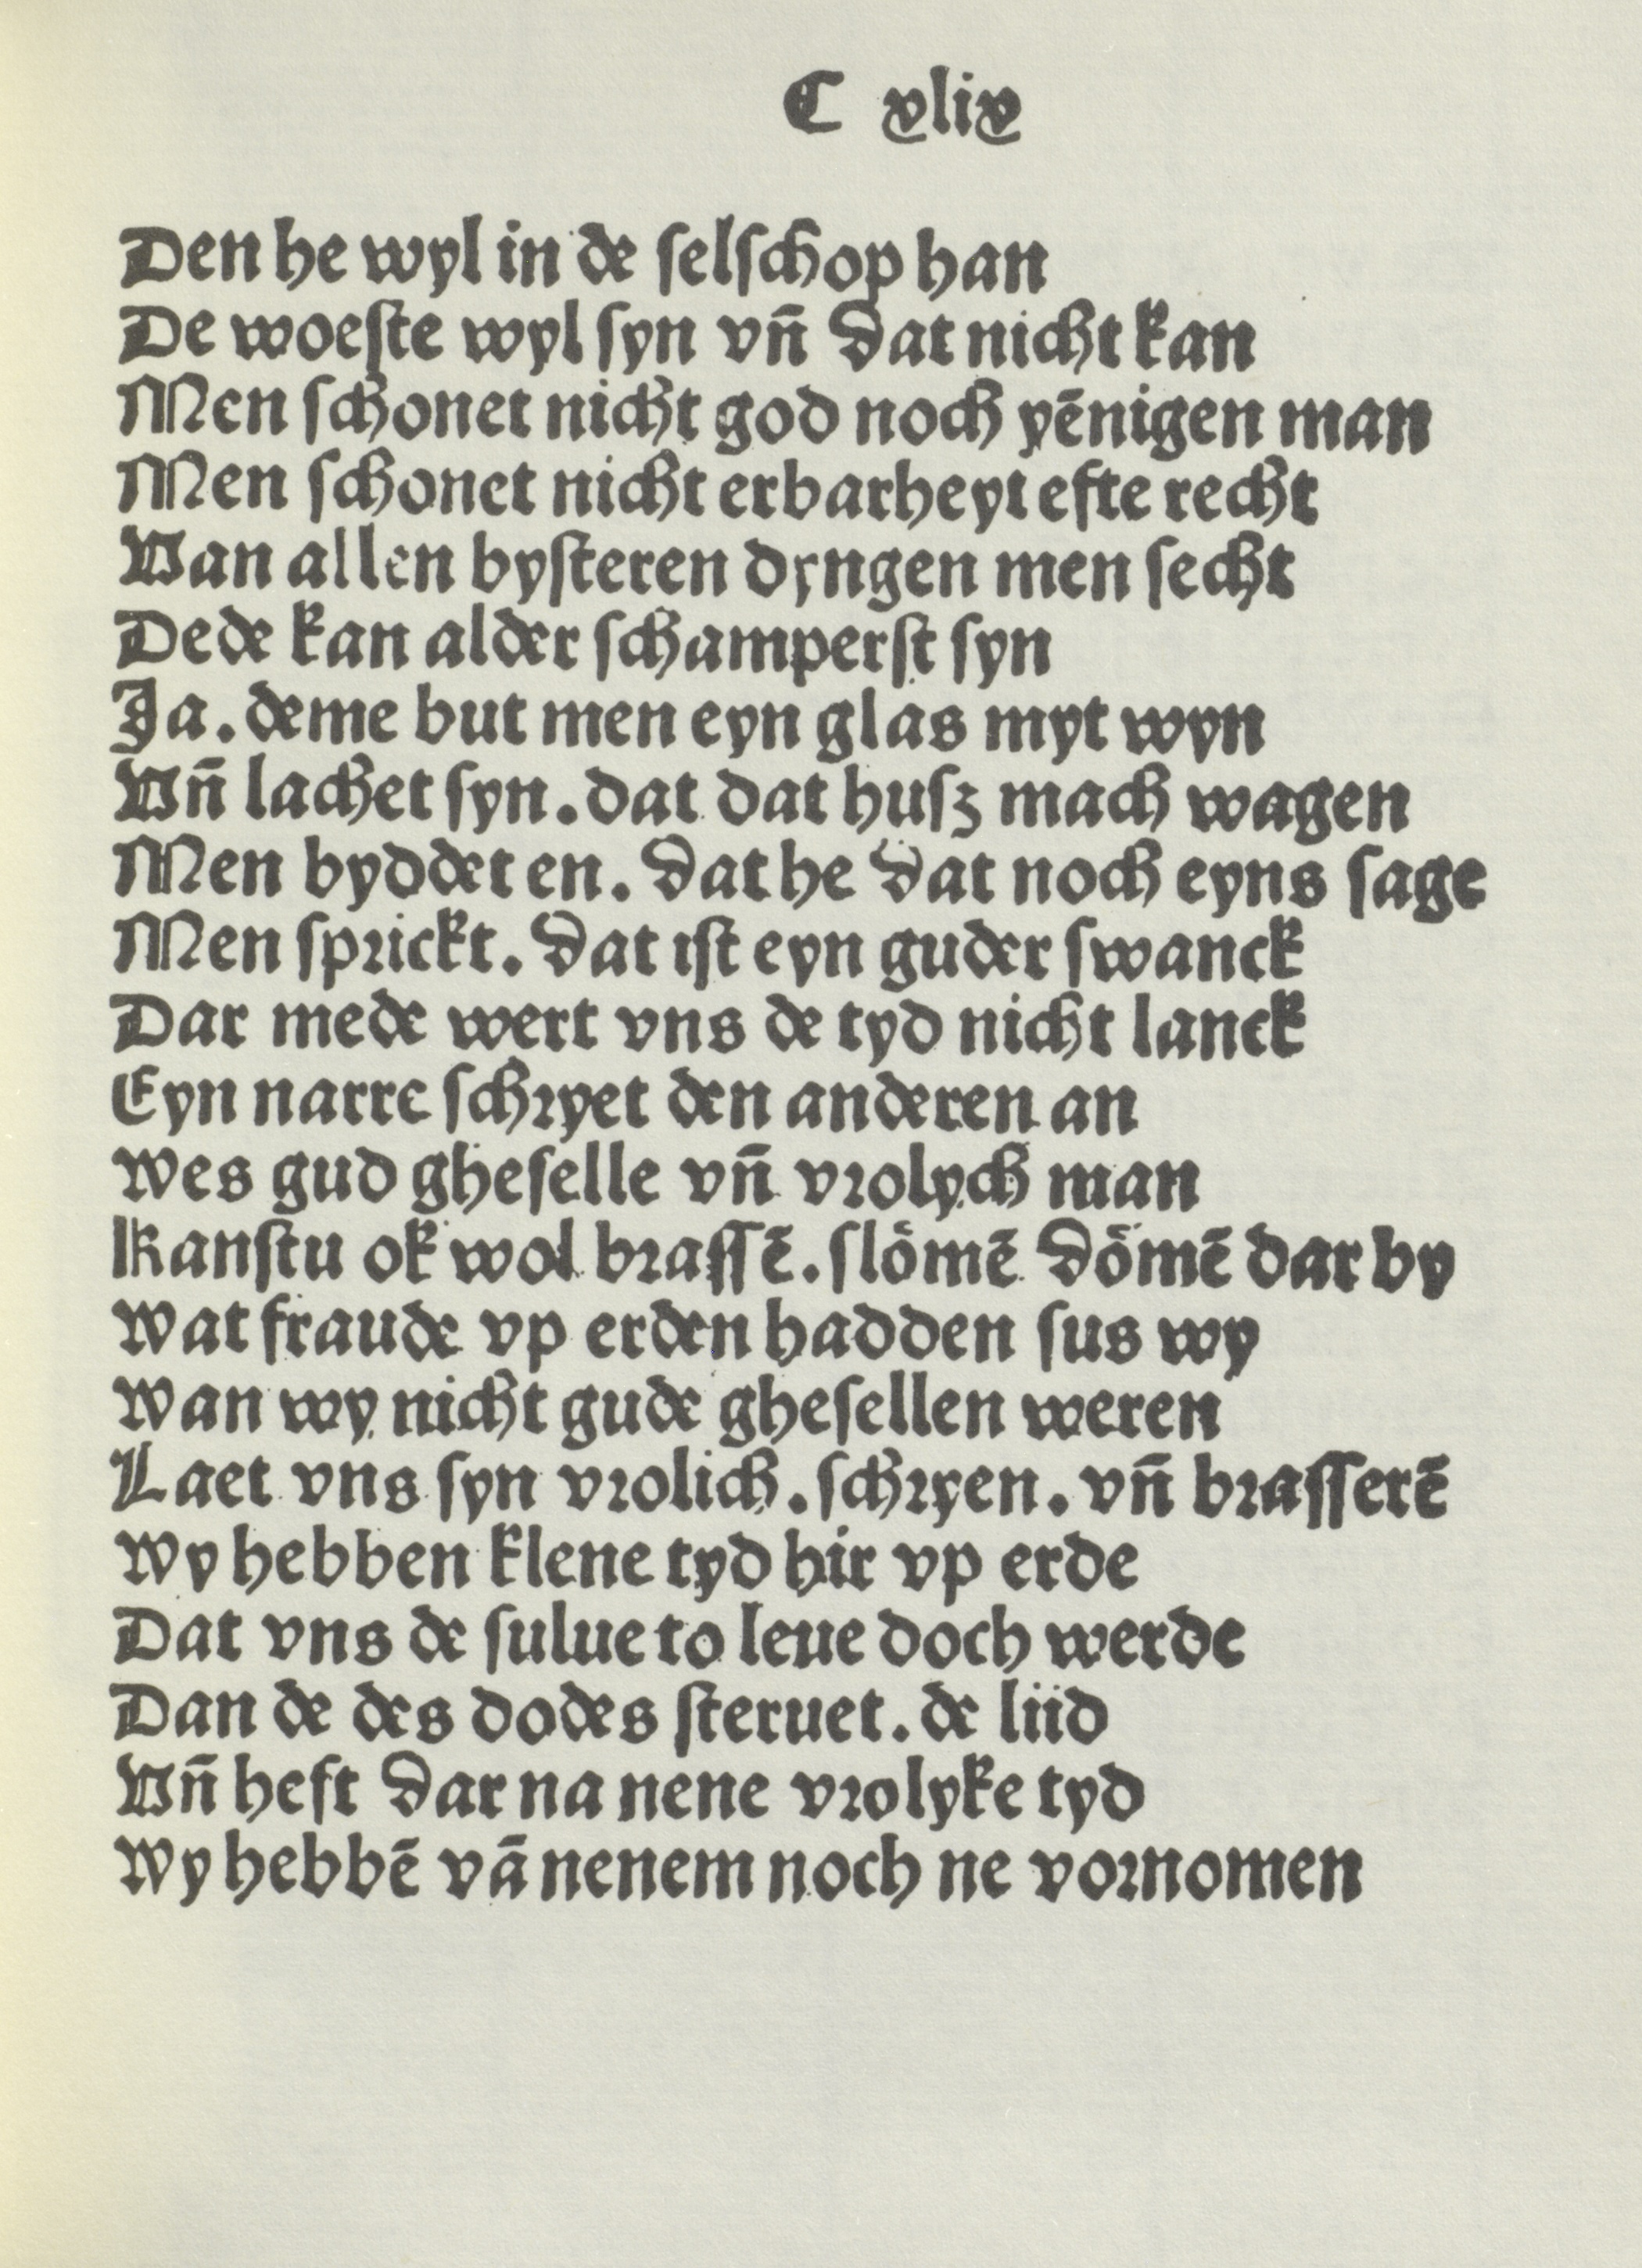 C xlix
Den he wyl in de ſelſchop han
De woeſte wyl ſyn vn̄ dat nicht kan
Men ſchonet nicht god noch yēnigen man
Men ſchonet nicht erbarheyt efte recht
Van allen byſteren dyngen men ſecht
Dede kan alder ſchamperſt ſyn
Ja. deme but men eyn glas myt wyn
Vn̄ lachet ſyn. dat dat huſz mach wagen
Men byddet en. dat he dat noch eyns ſage
Men ſprickt. dat iſt eyn guder ſwanck
Dar mede wert vns de tyd nicht lanck
Eyn narre ſchryet den anderen an
Wes gud gheſelle vn̄ vrolych man
Kanſtu ok wol braſſē. ſlömē dömē dar by
Wat fraude vp erden hadden ſus wy
Wan wy nicht gude gheſellen weren
Laet vns ſyn vrolich. ſchryen. vn̄ braſſerē
Wy hebben klene tyd hir vp erde
Dat vns de ſulue to leue doch werde
Dan de des dodes ſteruet. de liid
Vn̄ heft dar na nene vrolyke tyd
Wy hebbē vā nenem noch ne vornomen